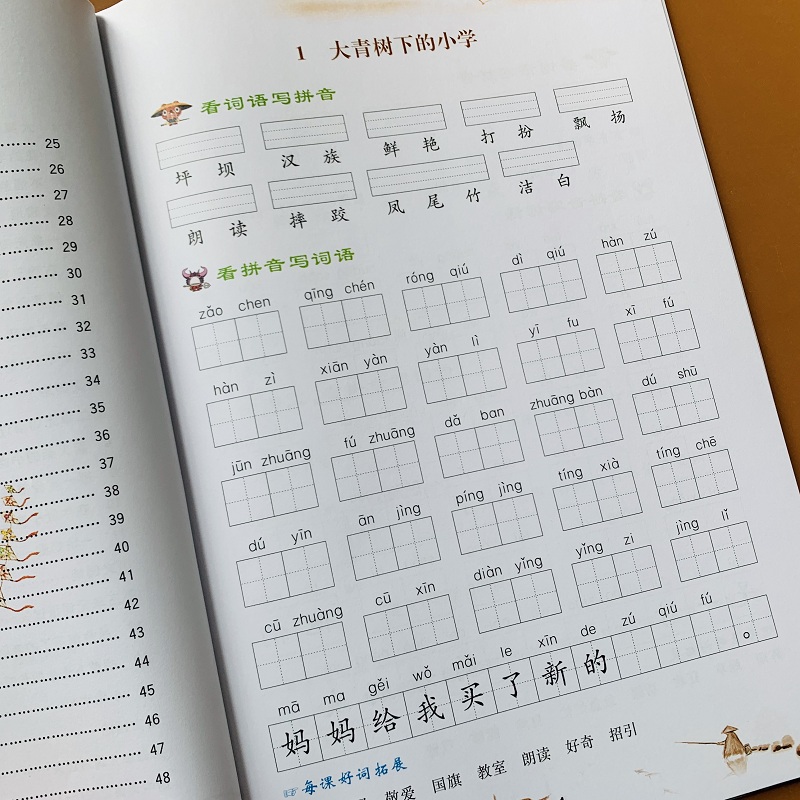 25
26
27
28
29
30
31
32
33
34
35
36
37
38
39
40
41
42
43
44
45
46
47
48
1 大青树下的小学
看词语写拼音
坪 坝 汉 族 鲜 艳 打 扮 飘 扬
朗 读 摔 跤 凤 尾 竹 洁 白
看拼音写词语
zǎo chen qīng chén róng qiú dì qiú hàn zú
hàn zì xiān yàn yàn lì yī fu xī fú
jūn zhuāng fú zhuāng dǎ ban zhuāng bàn dú shū
dú yīn ān jìng píng jìng tíng xià tíng chē
cū zhuàng cū xīn diàn yǐng yǐng zi jìng lǐ
mā ma gěi wǒ mǎi le xīn de zú qiú fú
妈 妈 给 我 买 了 新 的 。
每课好词拓展
敬爱 国旗 教室 朗读 好奇 招引